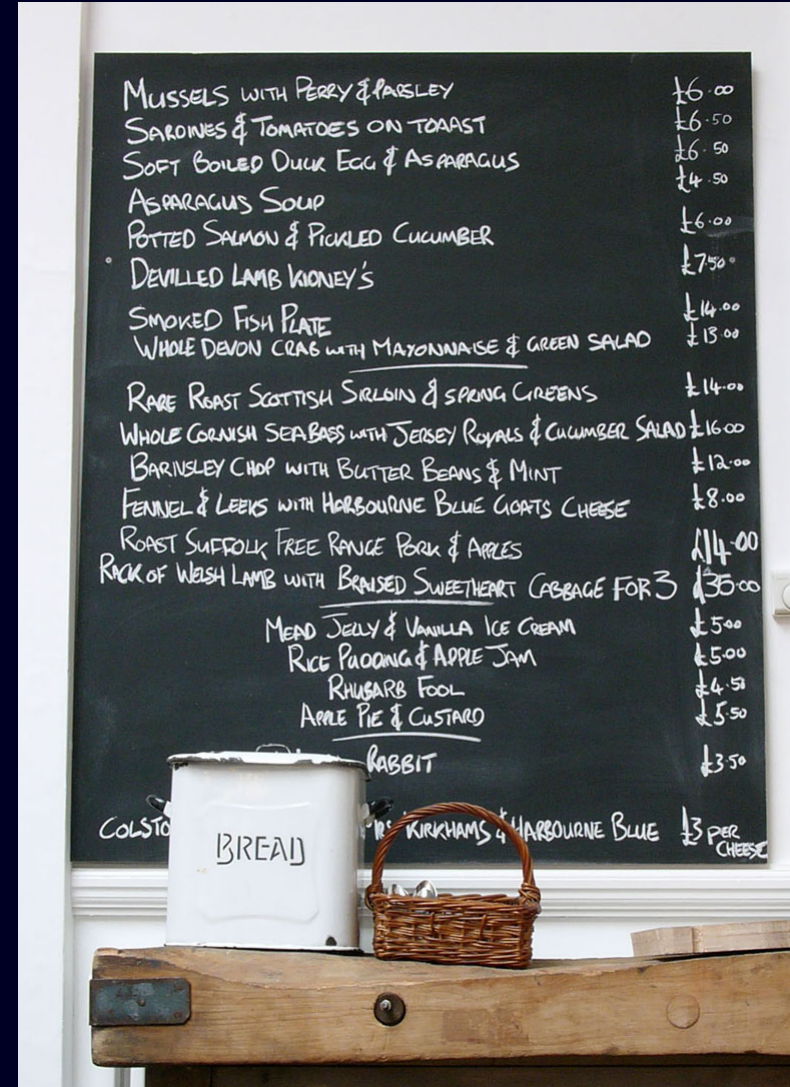 MUSSELS WITH PERRY & PARSLEY £6.00
SARDINES & TOMATOES ON TOAAST £6.50
SOFT BOILED DUCK EGG & ASPARAGUS £6.50
ASPARAGUS SOUP £4.50
POTTED SALMON & PICKLED CUCUMBER £6.00
DEVILLED LAMB KIDNEY'S £7.50
SMOKED FISH PLATE £14.00
WHOLE DEVON CRAB WITH MAYONNAISE & GREEN SALAD £13.00
RARE ROAST SCOTTISH SIRLOIN & SPRING GREENS £14.00
WHOLE CORNISH SEA BASS WITH JERSEY ROYALS & CUCUMBER SALAD £16.00
BARNSLEY CHOP WITH BUTTER BEANS & MINT £12.00
FENNEL & LEEKS WITH HARBOURNE BLUE GOATS CHEESE £8.00
ROAST SUFFOLK FREE RANGE PORK & APPLES £14.00
RACK OF WELSH LAMB WITH BRAISED SWEETHEART CABBAGE FOR 3 £35.00
MEAD JELLY & VANILLA ICE CREAM £5.00
RICE PUDDING & APPLE JAM £5.00
RHUBARB FOOL £4.50
APPLE PIE & CUSTARD £5.50
RABBIT £3.50
KIRKHAMS & HARBOURNE BLUE £3 PER CHEESE
BREAD